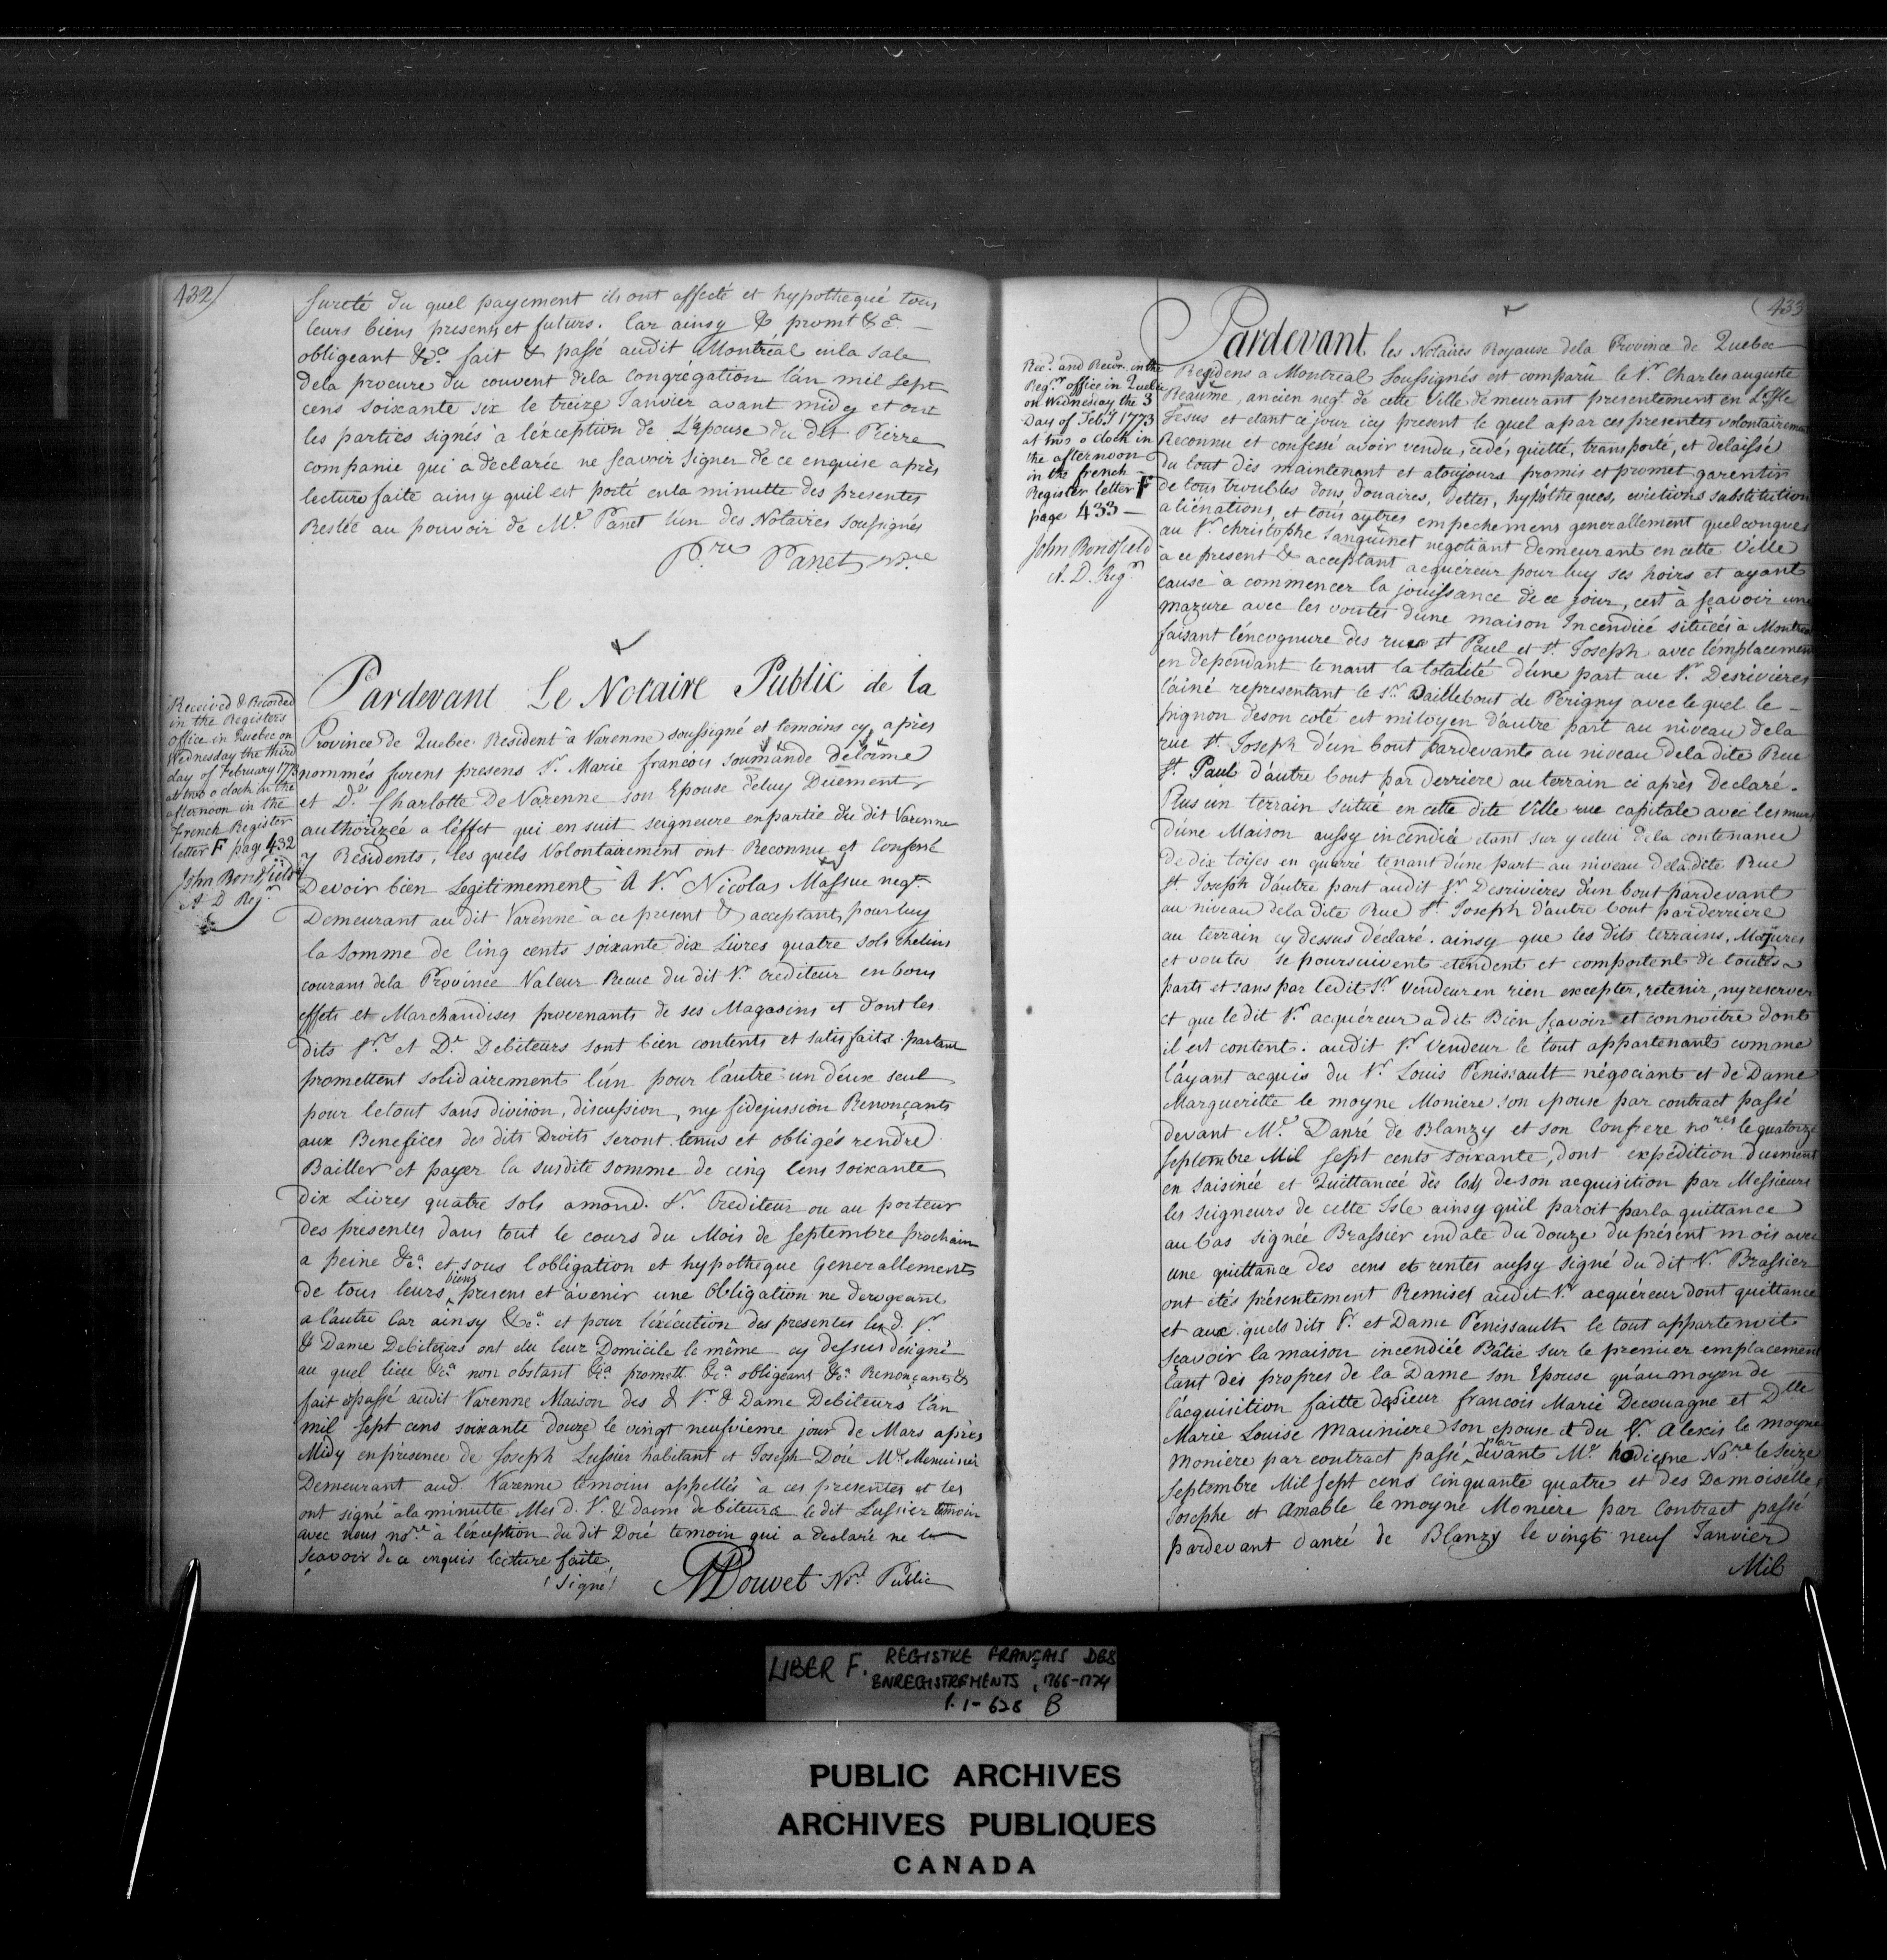 432)
Sureté du quel payement ils ont affecté et hypothequé tous
leurs biens presens et futurs. Car ainsy & promt &ca —
obligeant &ca fait & passé audit Montréal enla Sale
dela procure du couvent dela Congrégation l'an mil Sept
cens soixante six le treize Janvier avant midy et ont
les parties signés à l'éxception de L'Epouse du dit Pierre
companie qui a declarée ne scavoir Signer de ce enquise après
lecture faite ainsy quil est porté enla minutte des presentes
Restée au pouvoir de Me Panet l'un des Notaires soussignés
Prre Panet Nre
Received & Recorded
in the Registers
Office in Quebec on
Wednesday the third
day of February 1773
at two o clock in the
afternoon in the
French Register
letter F page 432
John Bondfield
A D Regr
Pardevant Le Notaire Public de la
Province de Quebec Resident à Varenne soussigné et temoins cy après
nommés furent presens Sr Marie françois Soumande delorme
et De Charlotte De Varenne son Epouse deluy Duement
authorizée a l'éffet qui en suit seigneure enpartie du dit Varenne
y Residents, les quels Volontairement ont Reconnu et Confessé
Devoir bien Legitimement à Sr Nicolas Massue negt
Demeurant au dit Varenne à ce present & acceptant, pour luy
la Somme de Cinq cents soixante dix Livres quatre sols chelins
courans dela Province Valeur Recue du dit Sr Crediteur en bons
effets et Marchandises provenants de ses Magasins et dont les
dits Srs et De Debiteurs sont bien contents et satisfaits. partant
promettent solidairement l'un pour l'autre un d'eux seul
pour letout sans division, discussion, ny fidejussion Renonçants
aux Benefices des dits Droits seront tenus et obligés rendre
Bailler et payer la susdite somme de cinq Cens soixante
dix Livres quatre sols amond. Sr Crediteur ou au porteur
des presentes dans tout le cours du Mois de Septembre prochain
a peine &ca et sous l'obligation et hypotheque Generallement
de tous leurs biens presens et àvenir une Obligation ne derogeant
a l'autre Car ainsy &ca et pour l'éxécution des presentes les d. Sr
& Dame Debiteurs ont elu leur Domicile le même cy dessus désigné
au quel lieu &ca non obstant &ca promett. &ca obligeant &ca Renonçant &
fait & passé audit Varenne Maison des d Sr & Dame Debiteurs l'an
mil Sept cens soixante douze le vingt neufvieme jour de Mars après
Midy enpresence de Joseph Lussier habitant et Joseph Doré Me Menuisier
Demeurant aud. Varenne temoins appellés à ces presentes et les
ont signé àla minutte Mes d. Sr & dame debiteurs ledit Lussier temoin
avec nous nore à l'éxception du dit Doré temoin qui a declaré ne le
Scavoir de ce enquis lecture faite
(Signé) Douvet Nore Public
(433
Recd and Recor. in the
Regrs office in Quebec
on Wednesday the 3
Day of Feby 1773
at two o clock in
the afternoon
in the french
Register letter F
page 433 —
John Bondfield
A. D. Regr
Pardevant les Notaires Royaux dela Province de Quebec
Residens a Montreal Soussignés est comparû le Sr Charles auguste
Reaume, ancien negt de cette Ville demeurant presentement en L'Isle
Jesus et etant ce jour icy present le quel a par ces presentes volontairement
Reconnu et confessé avoir vendu, cédé, quitté, transporté, et delaissé
du tout dès maintenant et atoujours promis et promet garentir
de tous troubles dons, douaires, dettes, hypotheques, evictions substitution
aliénations, et tous autres empechemens generallement quelconques
au Sr Christophe Sanguinet negotiant demeurant en cette Ville
à ce present & acceptant acquéreur pour luy ses hoirs et ayant
cause à commencer la jouissance de ce jour, cest à scavoir une
mazure avec les voutes d'une maison Incendiée situées à Montreal
faisant l'éncognure des rues St Paul et St Joseph avec l'émplacement
en dependant tenant la totalité d'une part au Sr Desrivieres
l'ainé representant le Sr Daillebout de Perigny avec le quel le -
pignon deson coté est mitoyen d'autre part au niveau dela
rue St Joseph d'un bout pardevant au niveau dela dite Rue
St Paul d'autre bout par derriere au terrain ci après Declaré.
Plus un terrain scitué en cette dite Ville rue capitale avec les murs
d'une Maison aussy incendiée etant sur ycelui dela contenance
De dix toises en quarré tenant d'une part au niveau deladite Rue
St Joseph d'autre part audit Sr Desrivieres d'un bout pardevant
au niveau dela dite Rue St Joseph d'autre bout par derriere
au terrain cy dessus déclaré. ainsy que les dits terrains, Mazures
et voutes se poursuivent etendent et comportent de toutes
parts et sans par ledit Sr Vendeur en rien excepter, retenir, ny reserver
et que le dit Sr acquéreur a dit Bien scavoir et connoitre dont
il est content. audit Sr Vendeur le tout appartenant comme
l'ayant acquis du Sr Louis Penissault négociant et de Dame
Margueritte le moyne Moniere son epouse par contract passé
devant Me Danré de Blanzy et son Confrere nores le quatorze
Septembre Mil Sept cents soixante, dont expédition duement
en Saisinée et Quittancée dès lors de son acquisition par Messieurs
les Seigneurs de cette Isle ainsy qu'il paroit parla quittance
au bas signée Brassier endate du douze du présent mois avec
une quittance des cens et rentes aussy signé du dit Sr Brassier
ont étés présentement Remises audit Sr acquéreur dont quittance
et aux quels dits Sr et Dame Penissault le tout appartenoit
Sçavoir la maison incendiée Bâtie sur le premier emplacement
tant des propres de la Dame son Epouse qu'au moyen de
l'acquisition faitte de Sieur francois Marie Decouagne et Dlle
Marie Louise Mauniere son epouse et du Sr Alexis le moyne
Moniere par contract passé par devant Me hodiesne Nore le Seize
Septembre Mil Sept cens Cinquante quatre et des Demoiselles
Josephe et Amable le moyne Moniere par Contract passé
pardevant danré de Blanzy le vingt neuf Janvier
Mil
LIBER F. REGISTRE FRANÇAIS DES
ENREGISTREMENTS, 1766-1774
P. 1-628 B
PUBLIC ARCHIVES
ARCHIVES PUBLIQUES
CANADA